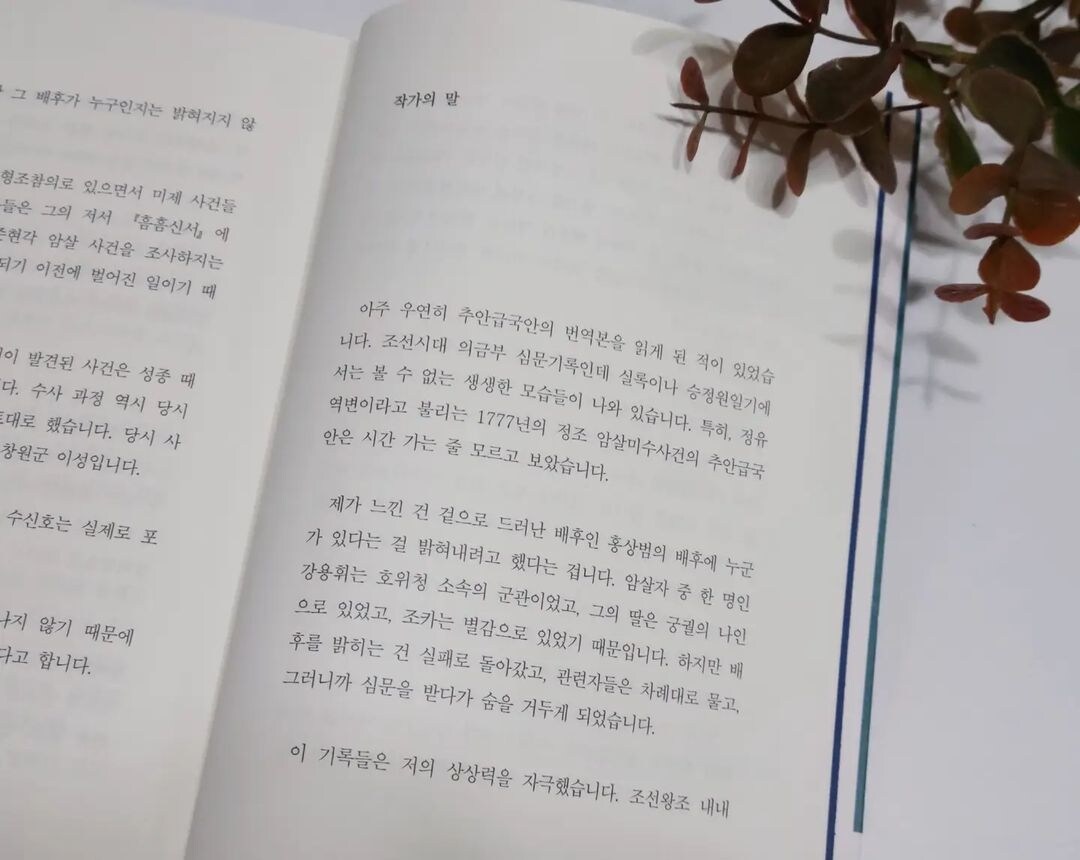 그 배후가 누구인지는 밝혀지지 않
형조참의로 있으면서 미제 사건들
들은 그의 저서 『흠흠신서』에
암살 사건을 조사하지는
되기 이전에 벌어진 일이기 때
발견된 사건은 성종 때
수사 과정 역시 당시
했습니다. 당시 사
창원군 이성입니다.
수신호는 실제로 포
않기 때문에
다고 합니다.
작가의 말
아주 우연히 추안급국안의 번역본을 읽게 된 적이 있었습
니다. 조선시대 의금부 심문기록인데 실록이나 승정원일기에
서는 볼 수 없는 생생한 모습들이 나와 있습니다. 특히, 정유
역변이라고 불리는 1777년의 정조 암살미수사건의 추안급국
안은 시간 가는 줄 모르고 보았습니다.
제가 느낀 건 겉으로 드러난 배후인 홍상범의 배후에 누군
가 있다는 걸 밝혀내려고 했다는 겁니다. 암살자 중 한 명인
강용휘는 호위청 소속의 군관이었고, 그의 딸은 궁궐의 나인
으로 있었고, 조카는 별감으로 있었기 때문입니다. 하지만 배
후를 밝히는 건 실패로 돌아갔고, 관련자들은 차례대로 물고,
그러니까 심문을 받다가 숨을 거두게 되었습니다.
이 기록들은 저의 상상력을 자극했습니다. 조선왕조 내내